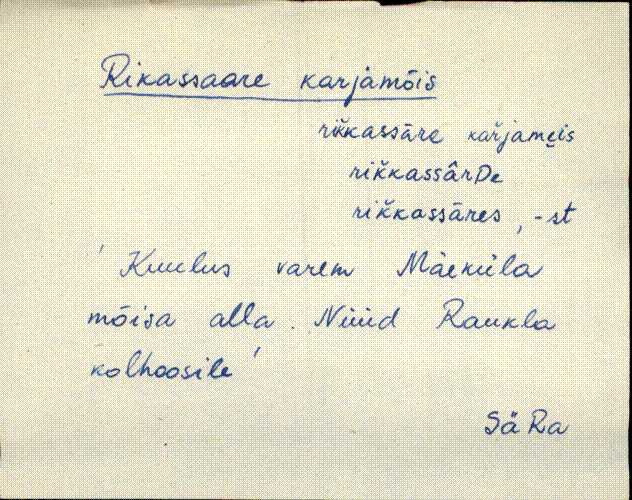 Rikassaare karjamõis
rik̆kassāre kar̆jamẹis
rik̆kassârDe
rik̆kassāres, -st
'Kuulus varem Mäeküla
mõisa alla. Nüüd Raukla
kolhoosile'
SäRa